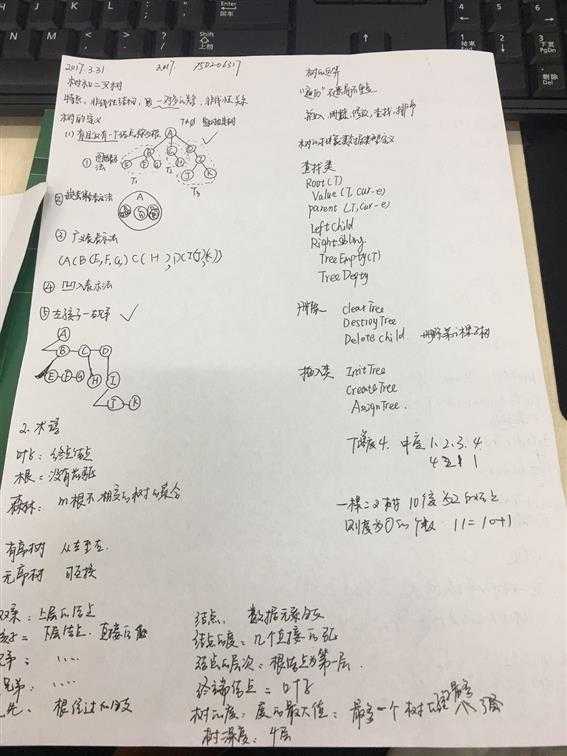 2017.3.31
树和二叉树
特点:非线性结构,一对多的关系,非线性关系
树的定义
(1) 有且只有一个结点称为根
① 图形表示法
T1 T2 T3
② 嵌套集合表示法
③ 广义表表示法
(A(B(E,F,G)C(H),D(I(J,K))
④ 凹入表示法
⑤ 左孩子—兄弟
A
B C D
E F G H I
J K
2. 术语
叶子:终点结点
根:没有前驱
森林:m根不相交的树的集合
有序树 从左至右.
无序树 可互换
双亲:上层的结点
孩子=下层结点.直接后继
兄弟:....
兄弟:....
先:根经过的分支
树的运算
"遍历"不重复不遗漏
插入,删除,修改,查找,排序
树的抽象数据类型定义
查找类
Root(T)
Value(T,cur-e)
parent(T,cur-e)
LeftChild
RightSibling
TreeEmpty(T)
TreeDepty
删除
clearTree
DestroyTree
Delete child 删除第i棵子树
插入类
InitTree
CreateTree
AssignTree.
T的度4. 中度1.2.3.4
4 2 1 1
一棵二叉树有10个度为2的结点
则度为0的个数 11=10+1
结点:数据元素分支
结点的度:几个直接后继
结点的层次:根结点为第一层.
终端结点=叶子
树的度:度的最大值:
树深度:4层